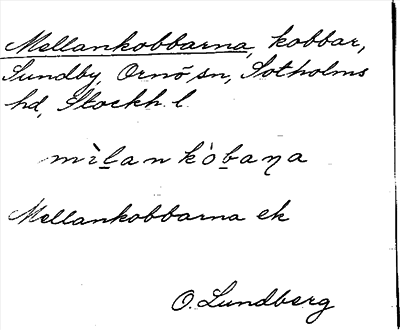 Mellankobbarna, kobbar,
Sundby, Ornö sn, Sotholms
hd, Stockh. l.
mìl̠ankòb̠aṇa
Mellankobbarna ek
O. Lundberg